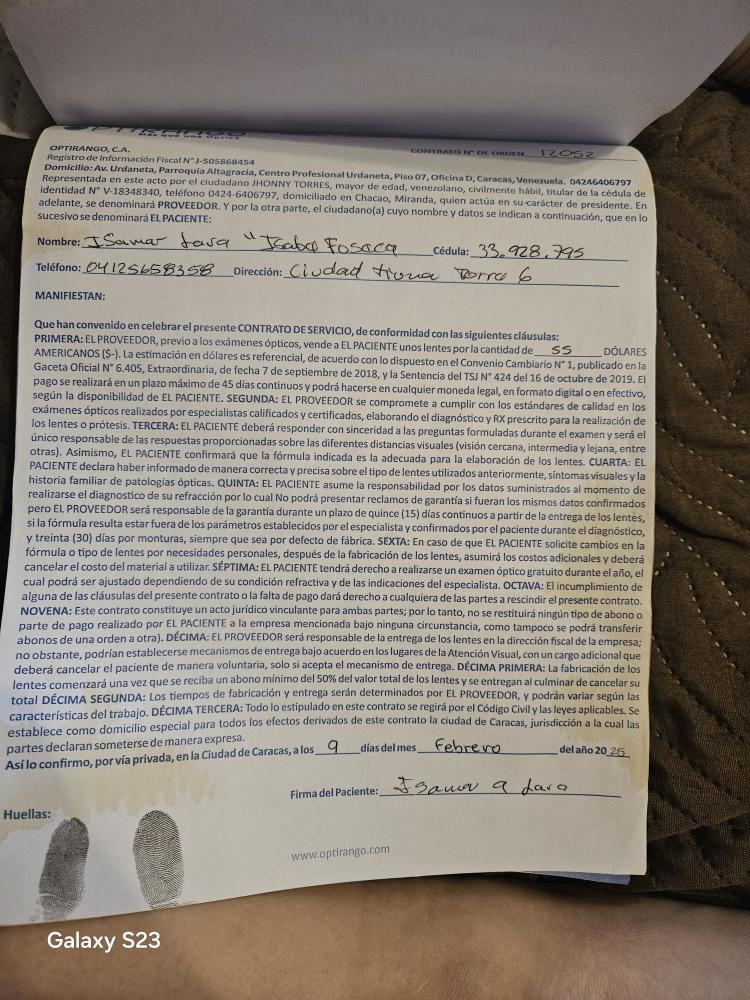 OPTIRANGO, C.A.
CONTRATO N° DE ORDEN 12052
Registro de Información Fiscal N° J-505868454
Domicilio: Av. Urdaneta, Parroquia Altagracia, Centro Profesional Urdaneta, Piso 07, Oficina D, Caracas, Venezuela. 04246406797
Representada en este acto por el ciudadano JHONNY TORRES, mayor de edad, venezolano, civilmente hábil, titular de la cédula de
identidad N° V-18348340, teléfono 0424-6406797, domiciliado en Chacao, Miranda, quien actúa en su carácter de presidente. En
adelante, se denominará PROVEEDOR. Y por la otra parte, el ciudadano(a) cuyo nombre y datos se indican a continuación, que en lo
sucesivo se denominará EL PACIENTE:
Nombre: Isamar Lara "Isaba Cédula: 33.928.795
Teléfono: 04125658358 Dirección: Ciudad Tiuna Torre 6
MANIFIESTAN:
Que han convenido en celebrar el presente CONTRATO DE SERVICIO, de conformidad con las siguientes cláusulas:
PRIMERA: EL PROVEEDOR, previo a los exámenes ópticos, vende a EL PACIENTE unos lentes por la cantidad de 55 DÓLARES
AMERICANOS ($-). La estimación en dólares es referencial, de acuerdo con lo dispuesto en el Convenio Cambiario N° 1, publicado en la
Gaceta Oficial N° 6.405, Extraordinaria, de fecha 7 de septiembre de 2018, y la Sentencia del TSJ N° 424 del 16 de octubre de 2019. El
pago se realizará en un plazo máximo de 45 días continuos y podrá hacerse en cualquier moneda legal, en formato digital o en efectivo,
según la disponibilidad de EL PACIENTE. SEGUNDA: EL PROVEEDOR se compromete a cumplir con los estándares de calidad en los
exámenes ópticos realizados por especialistas calificados y certificados, elaborando el diagnóstico y RX prescrito para la realización de
los lentes o prótesis. TERCERA: EL PACIENTE deberá responder con sinceridad a las preguntas formuladas durante el examen y será el
único responsable de las respuestas proporcionadas sobre las diferentes distancias visuales (visión cercana, intermedia y lejana, entre
otras). Asimismo, EL PACIENTE confirmará que la fórmula indicada es la adecuada para la elaboración de los lentes. CUARTA: EL
PACIENTE declara haber informado de manera correcta y precisa sobre el tipo de lentes utilizados anteriormente, síntomas visuales y la
historia familiar de patologías ópticas. QUINTA: EL PACIENTE asume la responsabilidad por los datos suministrados al momento de
realizarse el diagnostico de su refracción por lo cual No podrá presentar reclamos de garantía si fueran los mismos datos confirmados
pero EL PROVEEDOR será responsable de la garantía durante un plazo de quince (15) días continuos a partir de la entrega de los lentes,
si la fórmula resulta estar fuera de los parámetros establecidos por el especialista y confirmados por el paciente durante el diagnóstico,
y treinta (30) días por monturas, siempre que sea por defecto de fábrica. SEXTA: En caso de que EL PACIENTE solicite cambios en la
fórmula o tipo de lentes por necesidades personales, después de la fabricación de los lentes, asumirá los costos adicionales y deberá
cancelar el costo del material a utilizar. SÉPTIMA: EL PACIENTE tendrá derecho a realizarse un examen óptico gratuito durante el año, el
cual podrá ser ajustado dependiendo de su condición refractiva y de las indicaciones del especialista. OCTAVA: El incumplimiento de
alguna de las cláusulas del presente contrato o la falta de pago dará derecho a cualquiera de las partes a rescindir el presente contrato.
NOVENA: Este contrato constituye un acto jurídico vinculante para ambas partes; por lo tanto, no se restituirá ningún tipo de abono o
parte de pago realizado por EL PACIENTE a la empresa mencionada bajo ninguna circunstancia, como tampoco se podrá transferir
abonos de una orden a otra). DÉCIMA: EL PROVEEDOR será responsable de la entrega de los lentes en la dirección fiscal de la empresa;
no obstante, podrían establecerse mecanismos de entrega bajo acuerdo en los lugares de la Atención Visual, con un cargo adicional que
deberá cancelar el paciente de manera voluntaria, solo si acepta el mecanismo de entrega. DÉCIMA PRIMERA: La fabricación de los
lentes comenzará una vez que se reciba un abono mínimo del 50% del valor total de los lentes y se entregan al culminar de cancelar su
total DÉCIMA SEGUNDA: Los tiempos de fabricación y entrega serán determinados por EL PROVEEDOR, y podrán variar según las
características del trabajo. DÉCIMA TERCERA: Todo lo estipulado en este contrato se regirá por el Código Civil y las leyes aplicables. Se
establece como domicilio especial para todos los efectos derivados de este contrato la ciudad de Caracas, jurisdicción a la cual las
partes declaran someterse de manera expresa.
Así lo confirmo, por vía privada, en la Ciudad de Caracas, a los 9 días del mes Febrero del año 2025
Firma del Paciente: Isamar a Lara
Huellas:
www.optirango.com
Galaxy S23